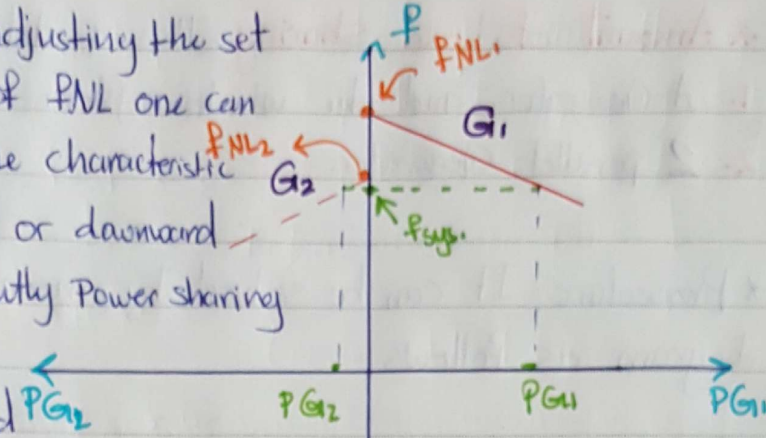 djusting the set
f fNL one can
e characteristic
or daunward
utly Power sharing
d
f
fNL1
G1
fNL2
G2
fsys.
PG2
PG2
PG1
PG1